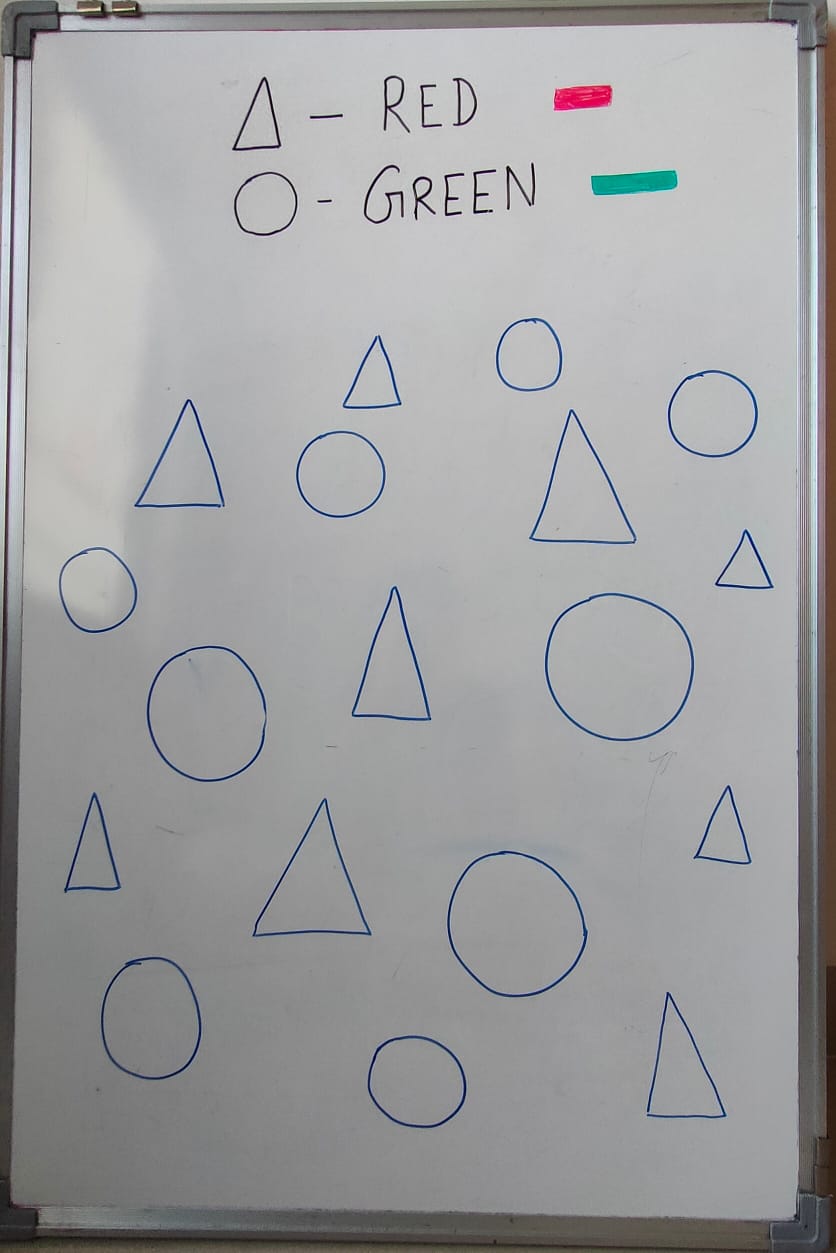 △ – RED
○ - GREEN